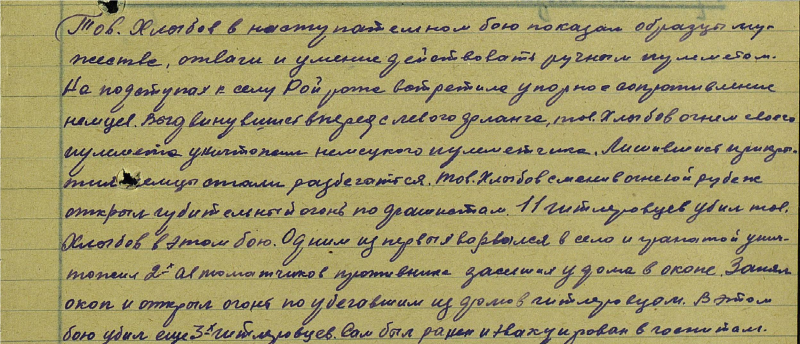 Тов. Хлыбов в наступательном бою показал образцы му-
жества, отваги и умение действовать ручным пулеметом.
На подступах к селу Рой рота встретила упорное сопротивление
немцев. Выдвинувшись вперед с левого фланга, тов. Хлыбов огнем своего
пулемета уничтожил немецкого пулеметчика. Лишившись прикры-
тия немцы стали разбегаться. Тов. Хлыбов сменив огневой рубеж
открыл губительный огонь по фашистам. 11 гитлеровцев убил тов.
Хлыбов в этом бою. Одним из первых ворвался в село и гранатой унич-
тожил 2х автоматчиков противника засевших у дома в окопе. Занял
окоп и открыл огонь по убегавшим из домов гитлеровцам. В этом
бою убил еще 3х гитлеровцев. Сам был ранен и эвакуирован в госпиталь.